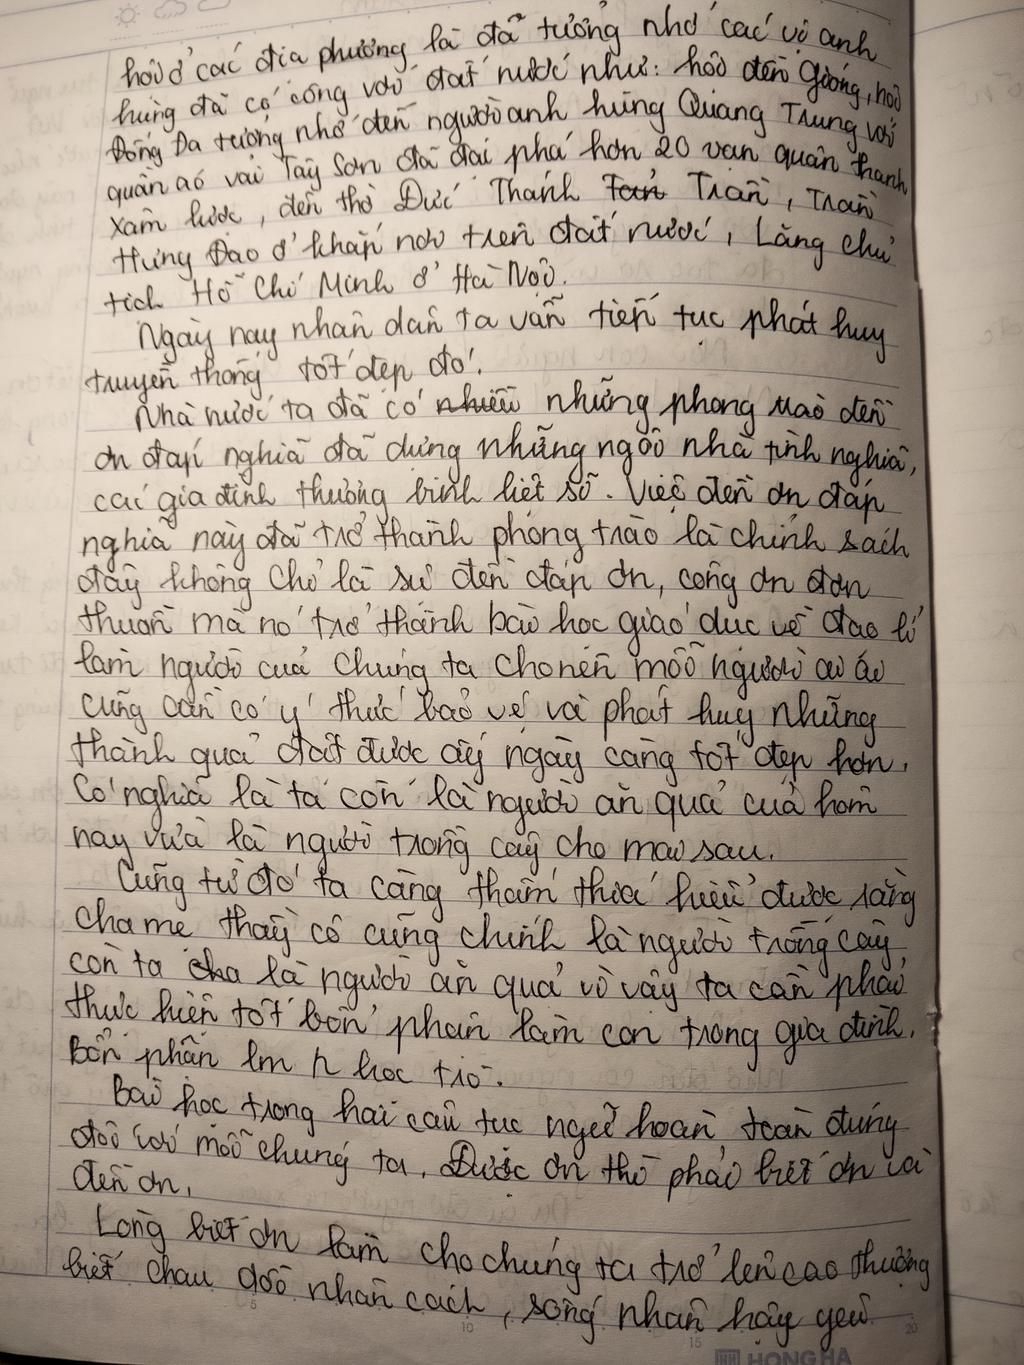 hội ở các địa phương là để tưởng nhớ các vị anh
hùng đã có công với đất nước như: hội đền Gióng, hội
Đống Đa tưởng nhớ đến người anh hùng Quang Trung với
quân áo vải Tây Sơn đã đại phá hơn 20 vạn quân thanh
xâm lược, đền thờ Đức Thánh Trần, Trần
Hưng Đạo ở khắp nơi trên đất nước, Lăng chủ
tịch Hồ Chí Minh ở Hà Nội.
Ngày nay nhân dân ta vẫn tiếp tục phát huy
truyền thống tốt đẹp đó.
Nhà nước ta đã có nhiều những phong trào đền
ơn đáp nghĩa đã dựng những ngôi nhà tình nghĩa,
các gia đình thương binh liệt sĩ. Việc đền ơn đáp
nghĩa này đã trở thành phong trào là chính sách
đây không chỉ là sự đền đáp ơn, công ơn đơn
thuần mà nó trở thành bài học giáo dục về đạo lí
làm người của chúng ta cho nên mỗi người ai ai
cũng cần có ý thức bảo vệ và phát huy những
thành quả đạt được ấy ngày càng tốt đẹp hơn.
Có nghĩa là ta còn là người ăn quả của hôm
nay vừa là người trồng cây cho mai sau.
Cũng từ đó ta càng thấm thía hiểu được rằng
cha mẹ thầy cô cũng chính là người trồng cây
còn ta là người ăn quả vì vậy ta cần phải
thực hiện tốt bổn phận làm con trong gia đình.
Bổn phận lm h học trò.
Bài học trong hai câu tục ngữ hoàn toàn đúng
đối với mỗi chúng ta. Được ơn thì phải biết ơn và
đền ơn.
Lòng biết ơn làm cho chúng ta trở lên cao thượng
biết chau dồi nhân cách, sống nhân hậu yêu
5 10 15 20
HONG HA